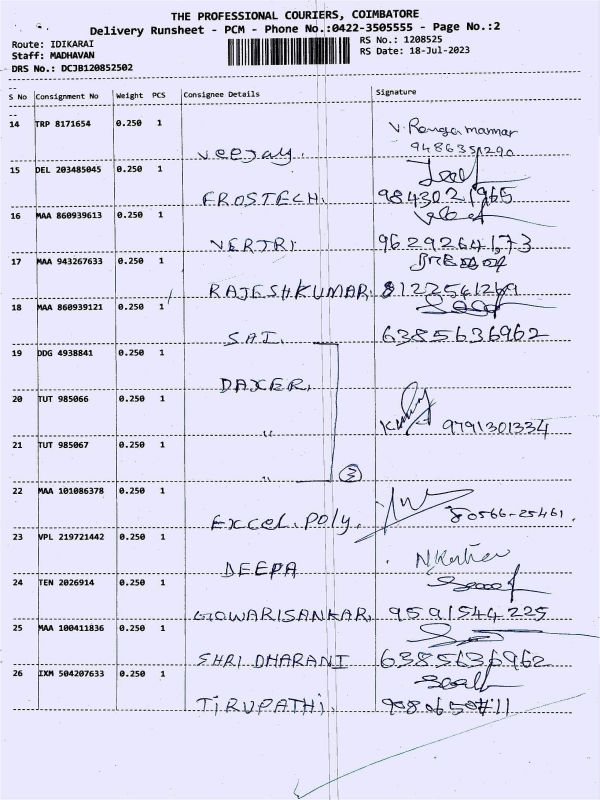 THE PROFESSIONAL COURIERS, COIMBATORE
Delivery Runsheet - PCM - Phone No.:0422-3505555 - Page No.:2
Route: IDIKARAI
RS No.: 1208525
Staff: MADHAVAN
RS Date: 18-Jul-2023
DRS No.: DCJB120852502
S No Consignment No Weight PCS Consignee Details Signature
14 TRP 8171654 0.250 1
V. Rangamannar
9486351290
Veejay.
15 DEL 203485045 0.250 1
FROSTECH. 9843021965
16 MAA 860939613 0.250 1
VERTRI 9629264173
17 MAA 943267633 0.250 1
RAJESHKUMAR. 8122541269
18 MAA 860939121 0.250 1
SAI. 6385636962
19 DDG 4938841 0.250 1
DAXER.
20 TUT 985066 0.250 1
" 9791301334
21 TUT 985067 0.250 1
" 3
22 MAA 101086378 0.250 1
Excel. Poly. 80566-25461.
23 VPL 219721442 0.250 1
DEEPA
24 TEN 2026914 0.250 1
GOWARISANKAR. 9591544225
25 MAA 100411836 0.250 1
SHRI DHARANI 6385636962
26 IXM 504207633 0.250 1
TIRUPATHI.